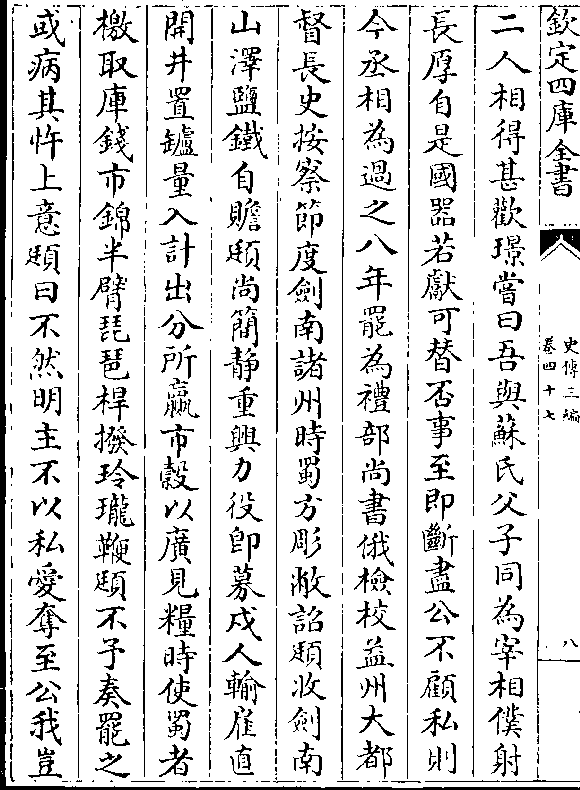 欽定四庫全書
史傳三編
卷四十七
八
二人相得甚歡璟嘗曰吾與蘇氏父子同為宰相僕射
長厚自是國器若獻可替否事至即斷盡公不顧私則
今丞相為過之八年罷為禮部尚書俄檢校益州大都
督長史按察節度劍南諸州時蜀方彫敝詔頲收劍南
山澤鹽鐵自贍頲尚簡靜重興力役即募戍人輸雇直
開井置鑪量入計出分所贏市糓以廣見糧時使蜀者
檄取庫錢市錦半臂琵琶桿撥玲瓏鞭頲不予奏罷之
或病其忤上意頲曰不然明主不以私愛奪至公我豈